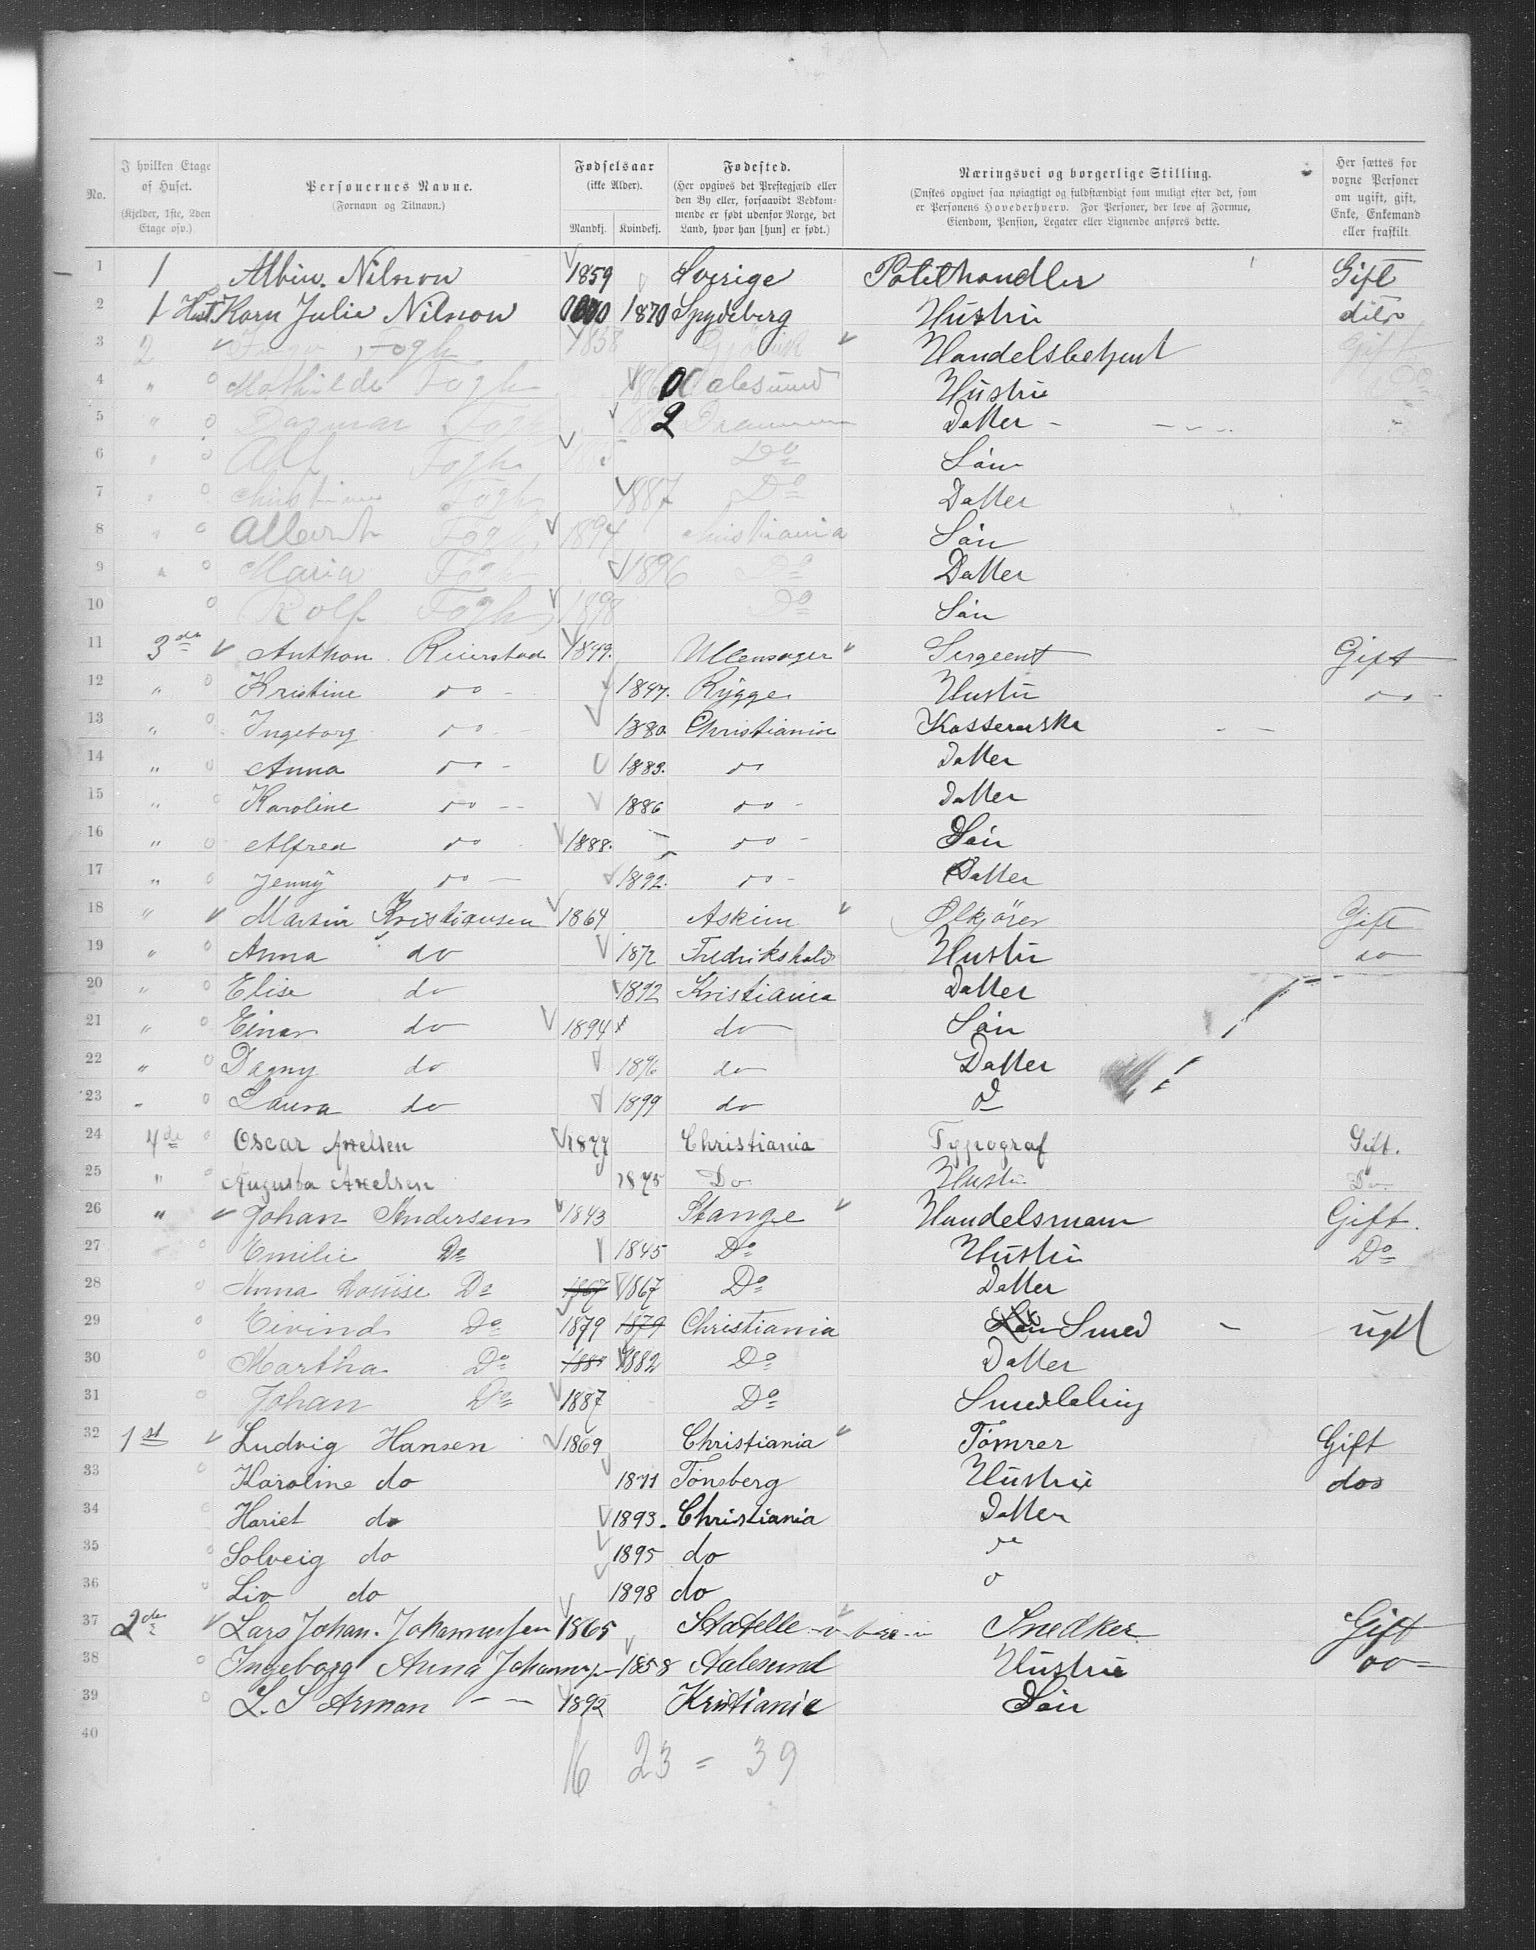 No. | I hvilken Etage of Huset. (Kjelder, 1ste, 2den Etage osv.) | Personernes Navne. (Fornavn og Tilnavn.) | Fødselsaar (ikke Alder). Mandkj. Kvindekj. | Fødested. (Her opgives det Prestegjæld eller den By eller, forsaavidt Bedkommende er født udenfor Norge, det Land, hvor han [hun] er født.) | Næringsvei og borgerlige Stilling. (Ønskes opgivet saa nøiagtigt og fuldstændigt som muligt efter det, som er Personens Hovederhverv. For Personer, der leve af Formue, Eiendom, Pension, Legater eller Lignende anføres dette. | Her sættes for voxne Personer om ugift, gift, Enke, Enkemand eller fraskilt.
1 1 Albin Nilsson 1859 Sverige Gift
2 1 Karn Julie Nilsson 1870 Spydeberg Hustru dito
3 2 Fogh 1858 Gjøvik Handelsbetjent Gift
4 " Mathilde Fogh Aalesund Hustru Do
5 " Dagmar Fogh Drammen Datter
6 " Alf Fogh Do Søn
7 " Christiane Fogh 1887 Do Datter
8 " Albert Fogh 1894 Christiania Søn
9 " Maria Fogh 1896 Do Datter
10 Rolf Fogh 1898 Do Søn
11 3de Anthon Reierstad 1849. Ullensager Sergeent Gift
12 " Kristine do 1847. Rygge Hustru do
13 " Ingeborg do 1880 Christiania
14 " Anna do 1883. do Datter
15 " Karoline do 1886 do Datter
16 " Alfred do 1888. do Søn
17 " Jenny do 1892. do Datter
18 " Martin Kristiansen 1864 Askim Ølkjører Gift
19 " Anna do 1872 Fredrikshald Hustru do
20 " Elise do 1892 Kristiania Datter
21 " Einar do 1894 do Søn
22 " Dagny do 1896 do Datter
23 " Laura do 1899 do
24 4de Oscar Axelsen 1877 Christiania Typograf Gift.
25 " Augusta Axelsen 1875 Do Hustru Do
26 " Johan Andersen 1843 Stange Handelsmann Gift.
27 Emilie Do 1845 Do Hustru Do
28 Anna Louise Do 1867 1867 Do Datter
29 Eivind Do 1879 1879 Christiania Søn Smed ugift
30 Martha Do 1882 Do Datter
31 Johan Do 1887 Do
32 1st Ludvig Hansen 1869 Christiania Tømrer Gift
33 Karoline do 1871 Tønsberg Hustru do
34 Hariet do 1893. Christiania Datter
35 Solveig do 1895 do
36 Liv do 1898 do
37 2de Lars Johan Johannessen 1865 Snedker Gift
38 Ingeborg Anna 1858 Aalesund Hustru do
39 L. S Arman 1892 Kristiania Søn
40
16 23 = 39